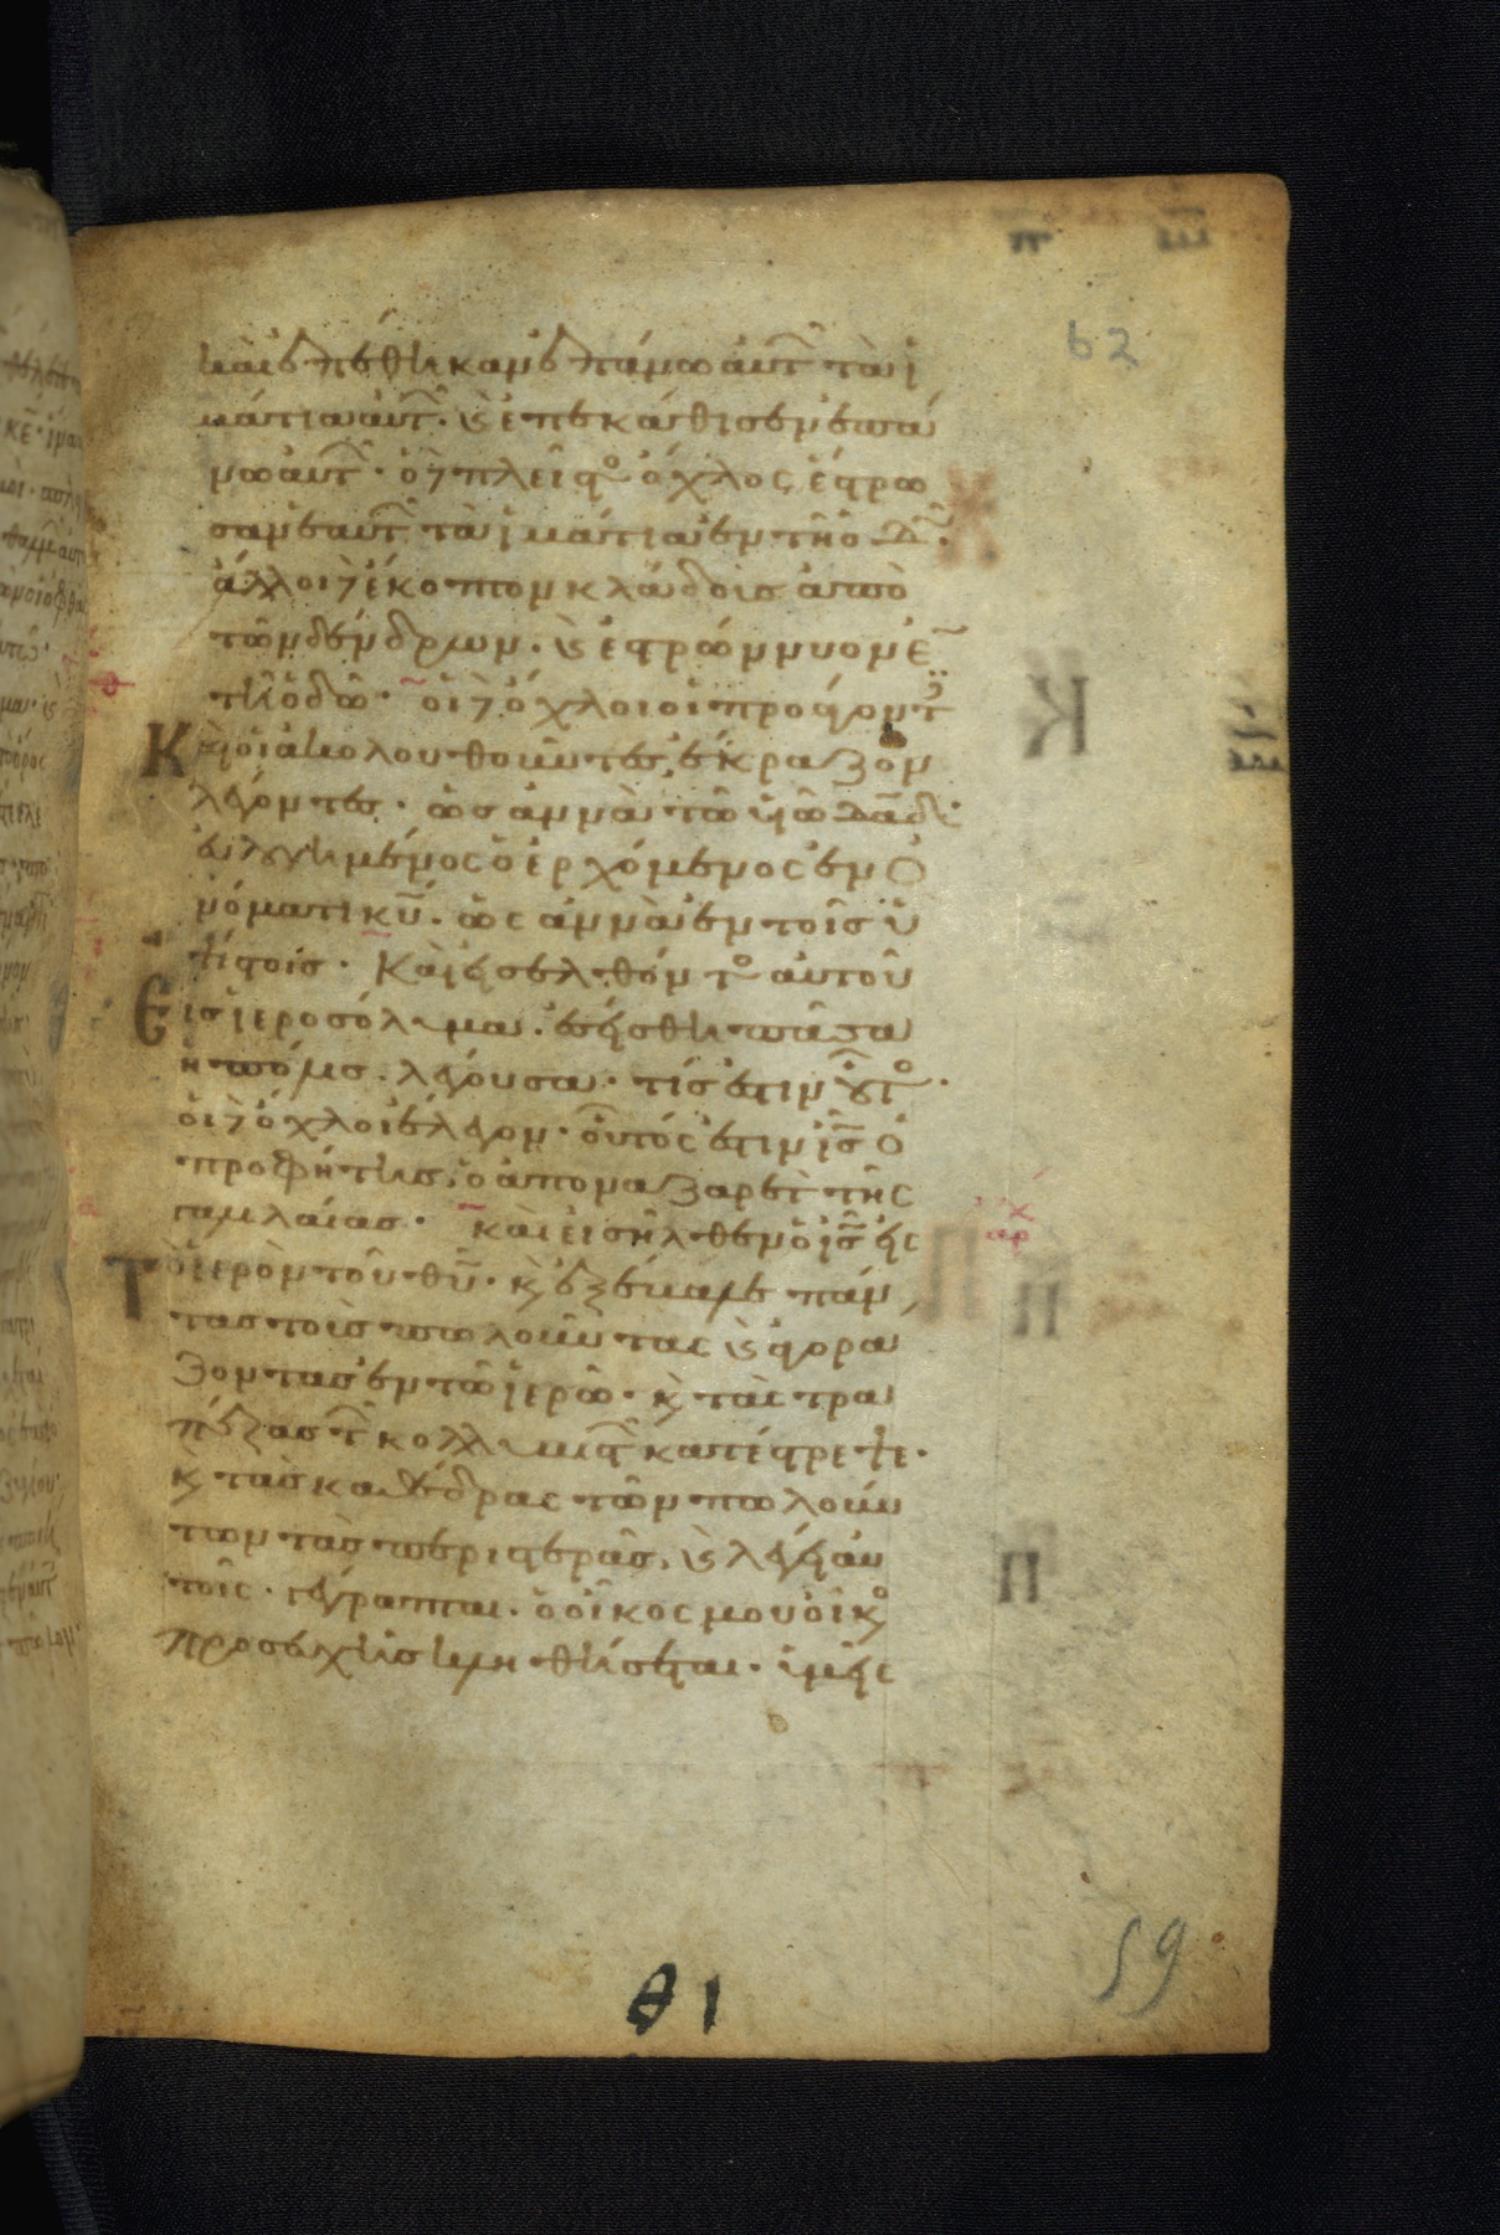 62
καὶ ἐπέθηκαν ἐπάνω αὐτ τὰ ἱ
μάτια αὐτ· κ ἐπεκάθισεν ἐπά
νω αὐτ· ὁ δὲ πλεῖστος ὄχλος ἔστρω
σαν ἑαυτ τὰ ἱμάτια ἐν τῆ ὁδ·
ἄλλοι δὲ ἔκοπτον κλάδοις ἀπὸ
τῶν δένδρων· κ ἐστρώννυον ἐ
τῆ ὁδῶ· οἱ δὲ ὄχλοι οἱ προάγοντ
Καὶ οἱ ἀκολουθοῦντες, ἔκραζον
λέγοντες· ὡσαννὰ τῶ υἱῶ δαδ·
εὐλογημένος ὁ ἐρχόμενος ἐν ὀ
νόματι κυ· ὡσαννὰ ἐν τοῖς ὑ
ψίστοις· Καὶ εἰσελθόντ αὐτοῦ
Εἰς ἱεροσόλυμα· ἐσείσθη πᾶσα
ἡ πόλις· λέγουσα· τίς ἐστιν οὗτος·
οἱ δὲ ὄχλοι ἔλεγον· οὗτός ἐστιν ις ὁ
προφήτης, ὁ ἀπο ναζαρὲτ τῆς
γαλιλαίας· καὶ εἰσῆλθεν ὁ ις εἰς
Τὸ ἱερὸν τοῦ θυ· κ ἐξέβαλε πάν
τας τοὺς πωλοῦντας κ ἀγορά
ζοντας ἐν τῶ ἱερῶ· κ τὰς τρα
πέζας τ κολλυβιστ κατέστρεψε·
κ τὰς καθέδρας τῶν πωλούν
των τὰς περιστεράς, κ λέγει αὐ
τοῖς· γέγραπται· ὁ οἶκος μου οἶκος
προσευχῆς κληθήσεται· ὑμεῖς
αρχ
59